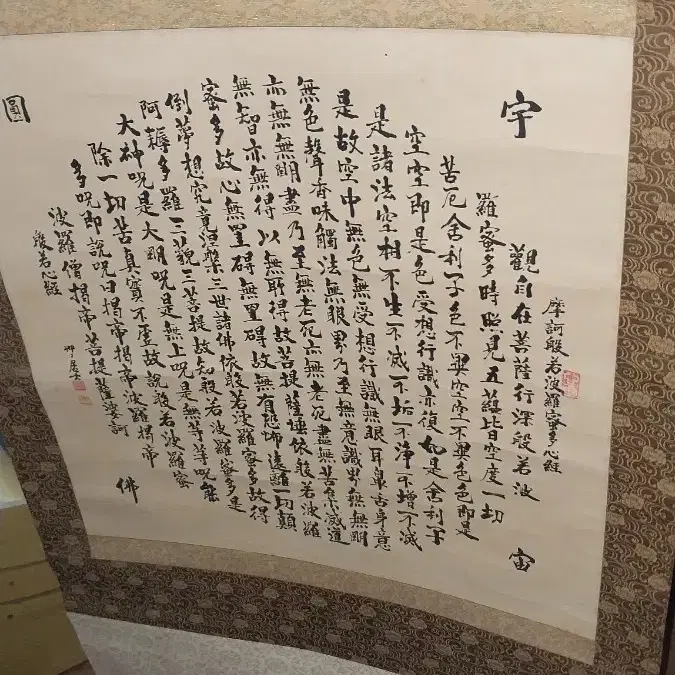 宇
宙
摩訶般若波羅蜜多心經
觀自在菩薩行深般若波
羅蜜多時照見五蘊皆空度一切
苦厄舍利子色不異空空不異色色即是
空空即是色受想行識亦復如是舍利子
是諸法空相不生不滅不垢不淨不增不減
是故空中無色無受想行識無眼耳鼻舌身意
無色聲香味觸法無眼界乃至無意識界無無明
亦無無明盡乃至無老死亦無老死盡無苦集滅道
無智亦無得以無所得故菩提薩埵依般若波羅
蜜多故心無罣礙無罣礙故無有恐怖遠離一切顛
倒夢想究竟涅槃三世諸佛依般若波羅蜜多故得
阿耨多羅三藐三菩提故知般若波羅蜜多是
大神呪是大明呪是無上呪是無等等呪能
除一切苦真實不虛故說般若波羅蜜
多呪即說呪曰揭帝揭帝波羅揭帝
波羅僧揭帝菩提薩婆訶
般若心經
圓
佛